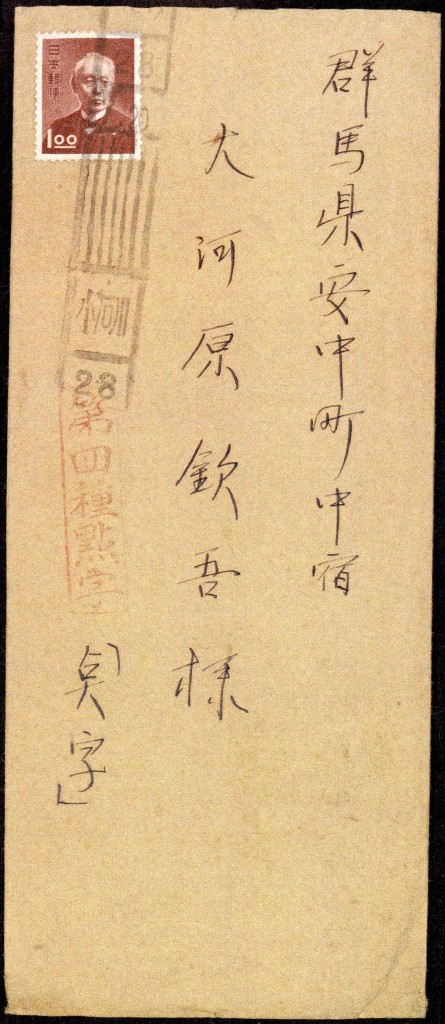 群馬県安中町中宿
大河原欽吾様
日本郵便
1.00
28
第四種點字
「点字」